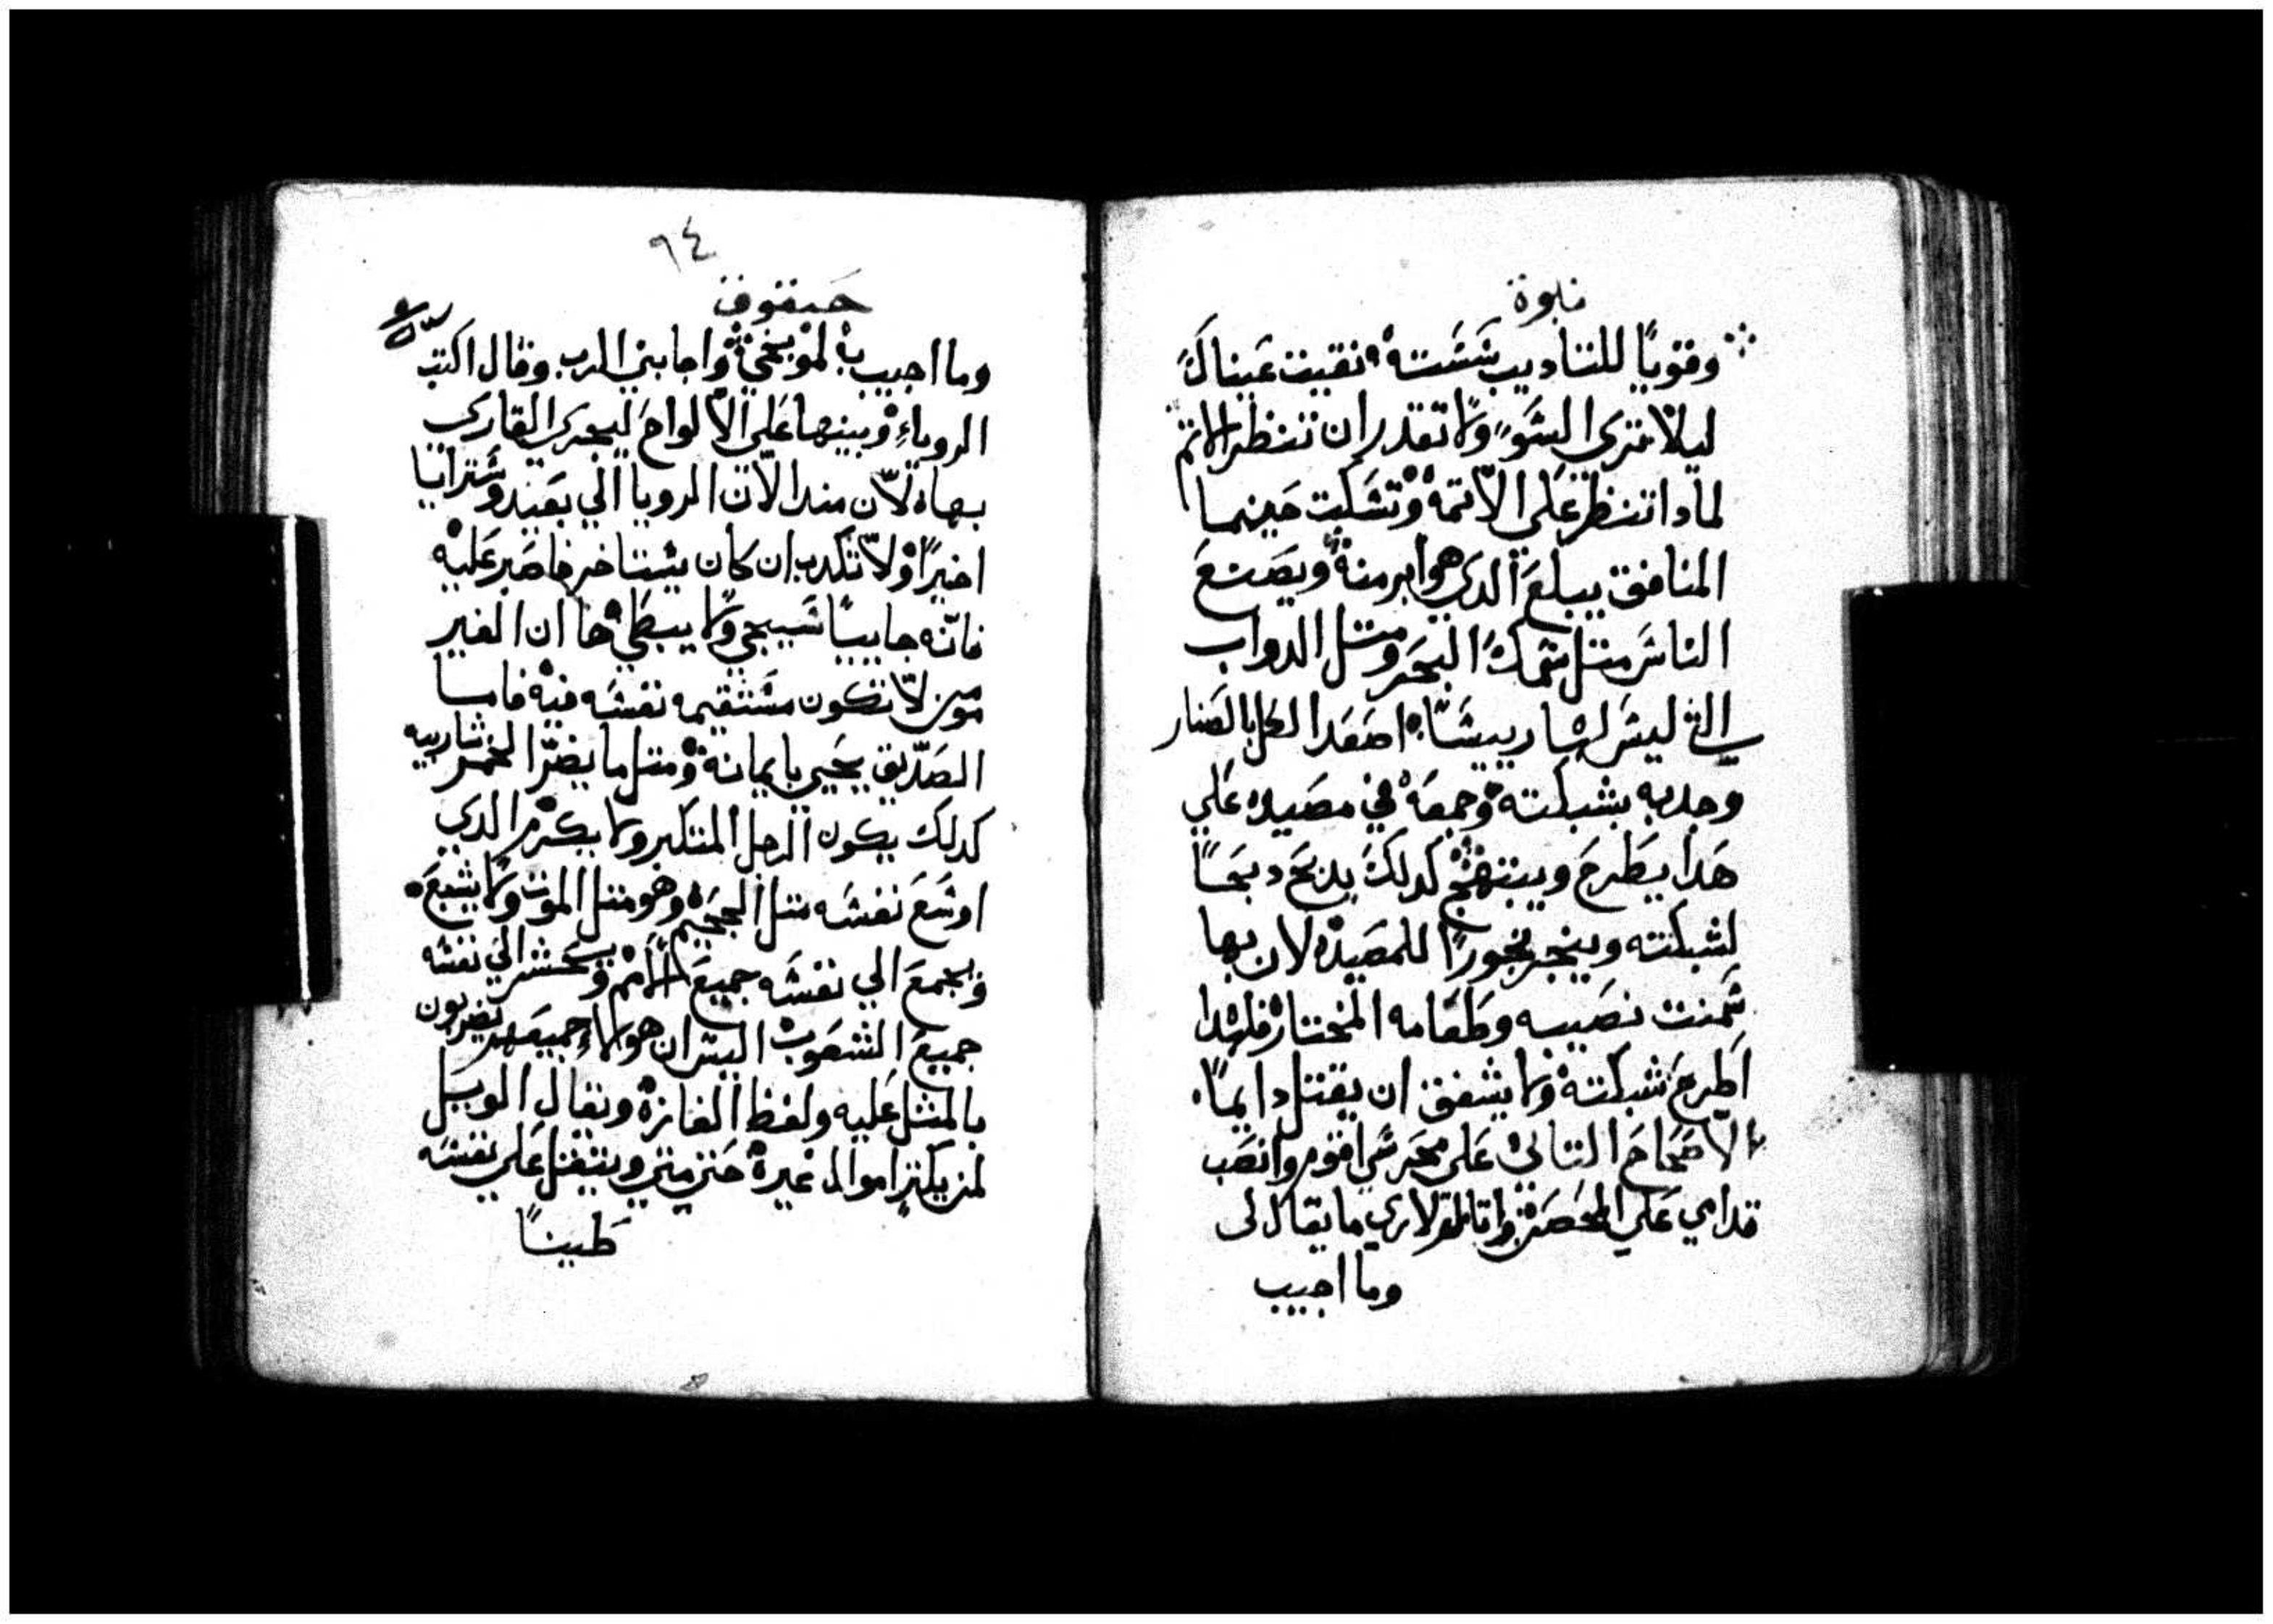 نبوة
وقويًا للتاديب سَسَته نقيت عَيناكَ
ليلا تري السَو ولا تقدر ان تنظر الاتم
لمادا تنظر علي الاتمه وتسَكت حَينما
المنافق يبلعَ الدي هو ابر منه ويصَنعَ
الناسَ متل سَمك البحَر ومتل الدواب
التي ليسَ لها رييسًا اصَعَد الكل بالصَنار
وجدبه بشبكته وجمعَه في مصَيده عَلي
هَدا يطَرحَ ويبتهج كدلكَ يدبح دبحًا
لشبكته ويبخر بخورًا للمصَيده لان بها
سَمنت نصَيبه وطَعَامه المختاره فلهدا
اطرحَ شبكته ولا يشفق ان يقتل دايمًا
الاصَحاحَ التاني عَلي محَرسَي اقوم وانصَب
قدامي عَلي المحَصَن واتامل لاري ما يقال لي
وما اجيب
٩٤
حبقوق
وما اجيب لموبخي واجابني الرب وقال اكتب
الروياء وبينها عَلي الالواحَ ليجري القاري
بها لان مند الان الرويا الي بعَيد وسَترايا
اخيرًا ولا تكدب ان كان يسَتاخر فاصَبر عَليه
فانه جاييًا سَيجي ولا يبطي ها ان الغير
مومن لا تكون مسَتقيمه نفسَه فيه فاما
الصَديق يحَيي بايمانه ومتل ما يضر الخمر شاربيه
كدلك يكون الرجل المتكبر ولا يكرم الدي
اوسَعَ نفسَه متل الجحَيم وهو متل الموت ولا يشبعَ
ويجمعَ الي نفسَه جميعَ الامم ويحَشر الي نفسَه
جميعَ الشعَوب اليسَ ان هولاء جميعَهم يضربون
بالمتل عَليه ولفظ الغازه ويقال الويل
لمن يكتر اموال غيره حَتي متي ويتقل عَلي نفسَه
طَينًا